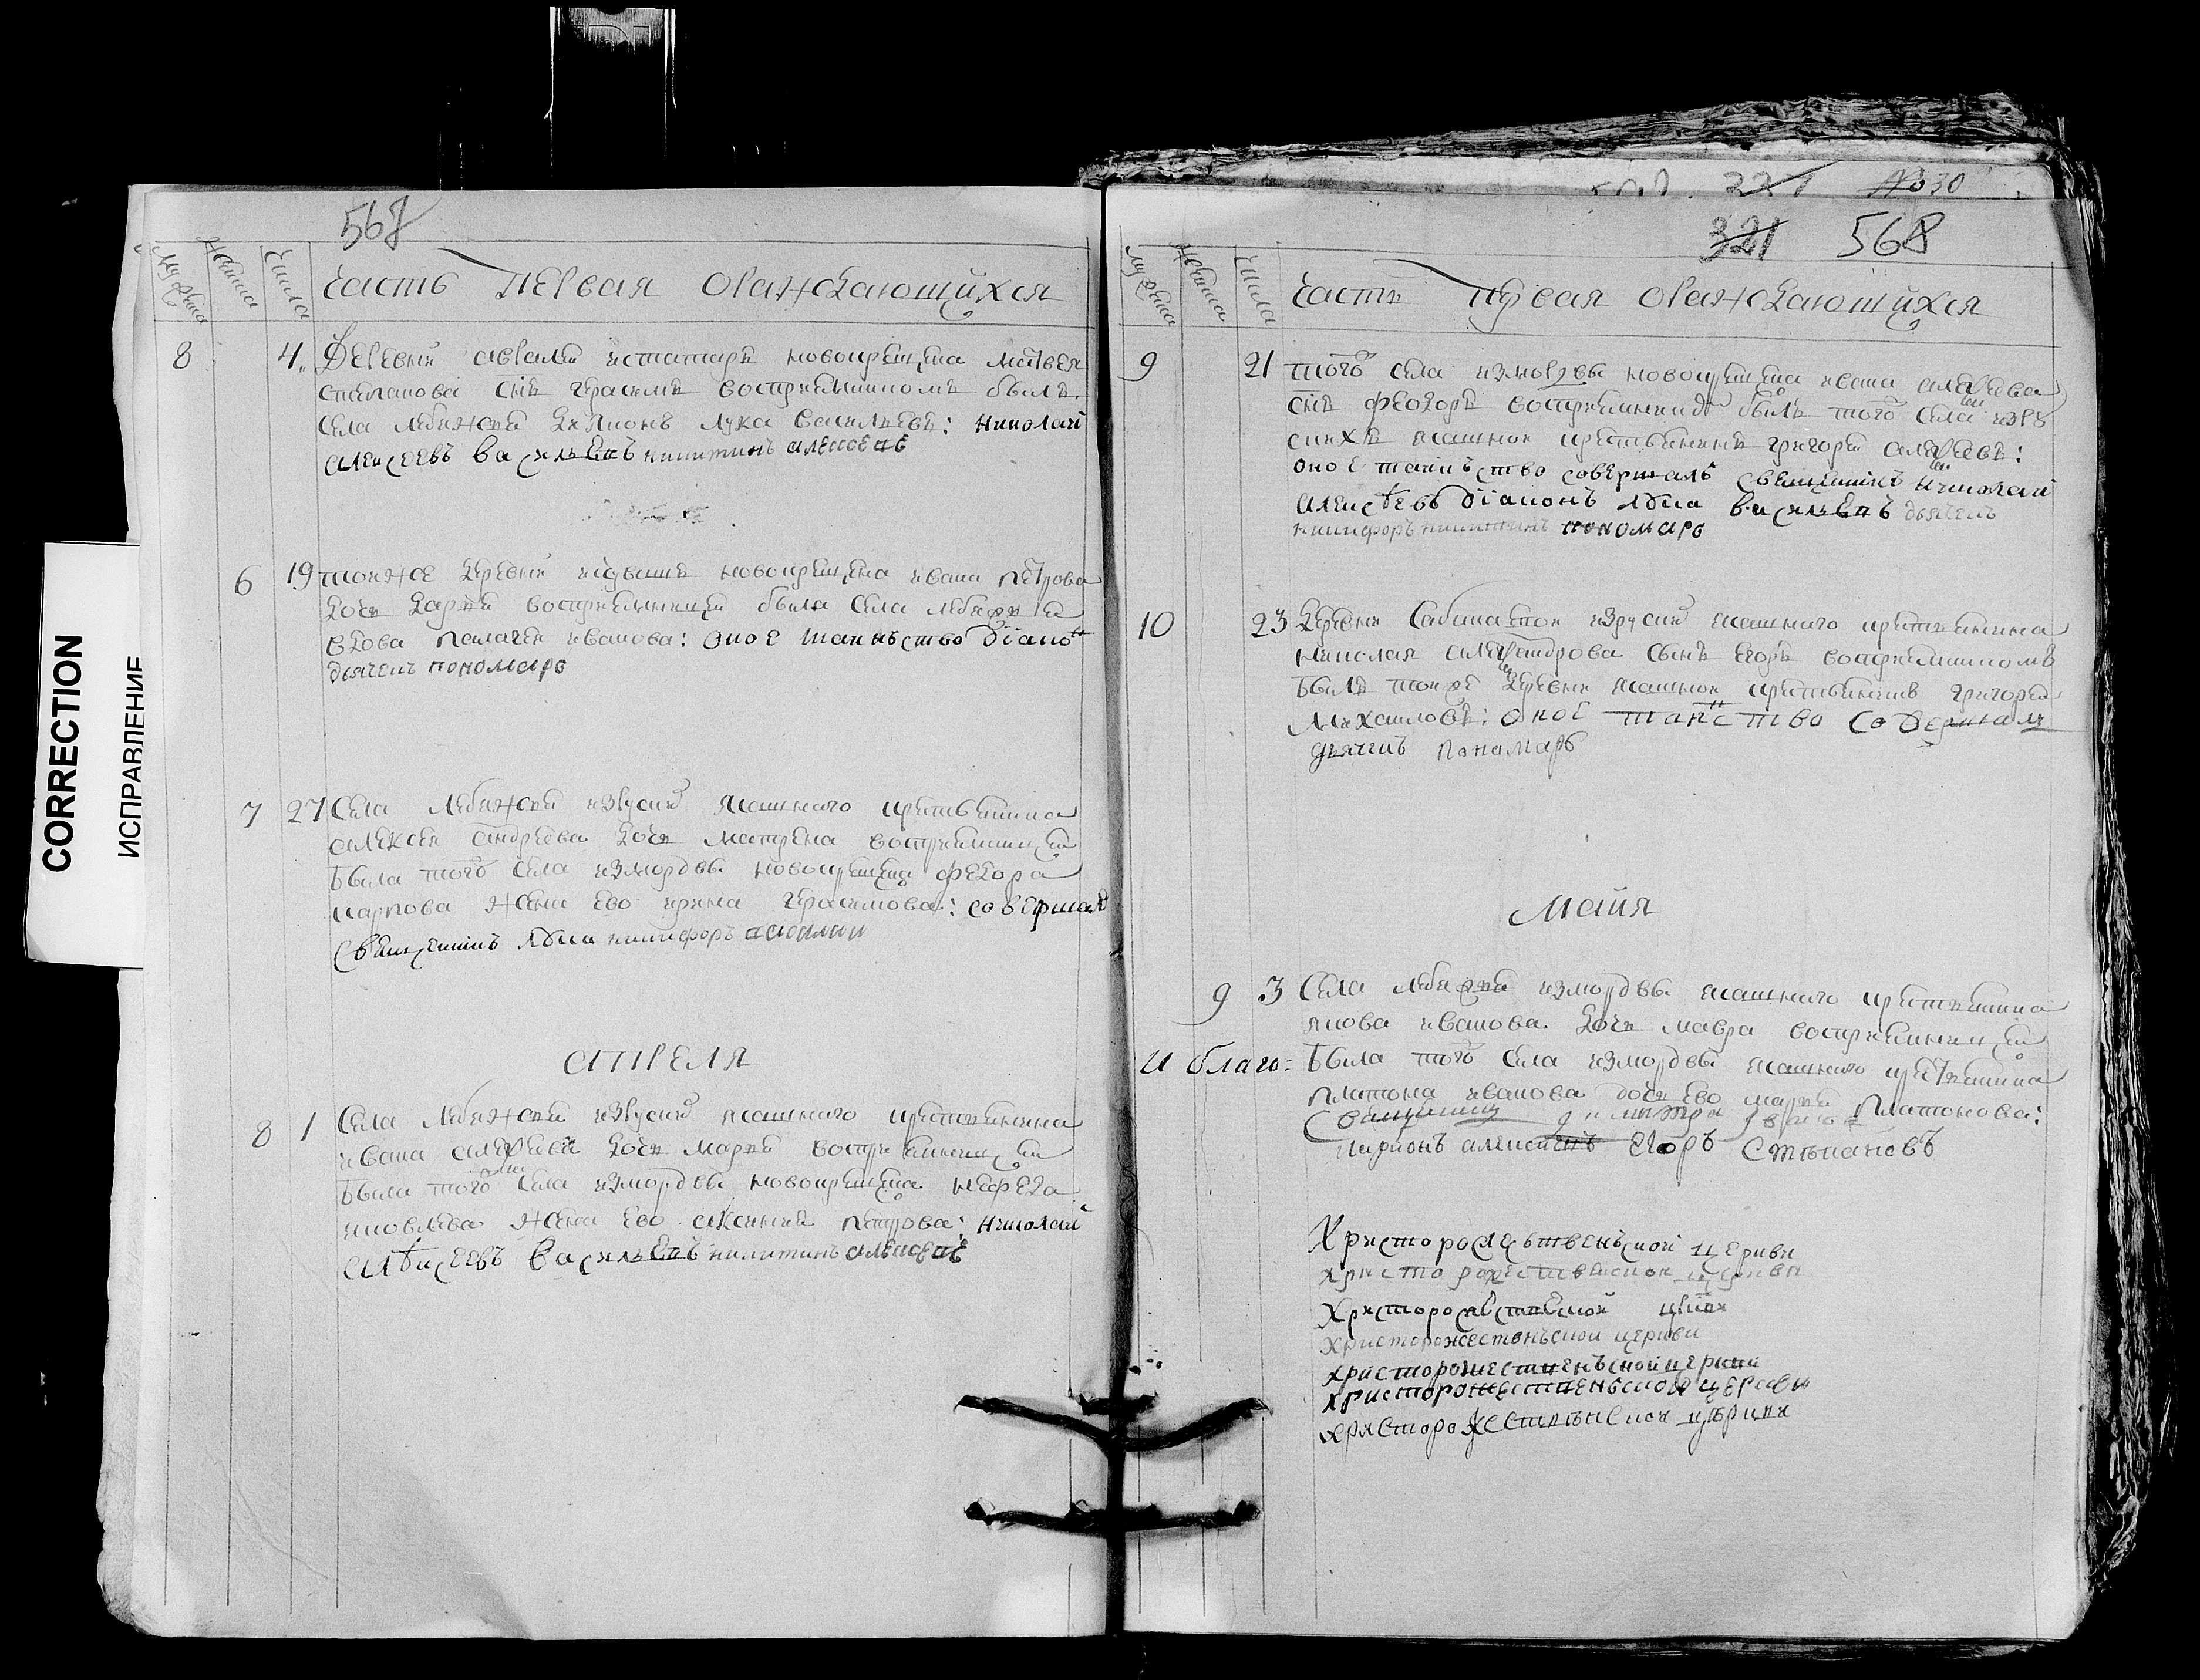 CORRECTION
ИСПРАВЛЕНИЕ
567
Мужеска
Женска
Числа
Часть Первая ораждающихся
8 4. Деревни истатаръ новокрещена матвея
степанова снъ герасимъ восприемникомъ былъ
села лебяжей дияконъ лука васильевъ: николай
алексеевъ васильевъ никитинъ
6 19 тоеже деревни новокрещена ивана петрова
дочь дарья восприемницей была села лебяжей
вдова пелагея иванова: оное таинъство диако
дьячекъ пономаръ
7 27 Села Лебяжей изруских ясашного крестьянина
алексея андреева дочь матрена восприемницей
была того села измордвы новокрещена федора
карпова жена ево ирина герасимова: совершал
священикъ лука никифоръ
апреля
8 1 Села Лебяжей изруских ясашного крестьянина
ивана дочь марья восприемницей
была того села измордвы новокрещена
яковлева жена ево аксинья петрова: николай
алексеевъ васильевъ никитинъ
№ 30
321 568
Мужеска
Женска
Числа
Часть первая ораждающихся
9 21 того села измордвы новокрещена ивана
снъ феодоръ восприемникомъ былъ того села изру
скихъ ясашной крестьянинъ григорей
оное таинъство совершалъ священикъ николай
алексеевъ диаконъ лука васильевъ дьячекъ
никифоръ никитинъ пономаръ
10 23 деревни изруских ясашного крестьянина
николая александрова сынъ егоръ восприемникомъ
былъ тоеже деревни ясашной крестьянинъ григорей
михаиловъ: оное таинство совершали
дьячекъ пономаръ
Майя
9 3 Села лебяжей измордвы ясашного крестьянина
якова иванова дочь мавра восприемницей
И благо= была того села измордвы ясашного крестьянина
платона иванова дочь ево марья платонова:
священикъ димитри
ларионъ алексеевъ егоръ степановъ
Христорождественъской церкви
христорождественской церкви
Христорождественской цркви
христорожественъской церкви
христорожественъской церкви
христорожественъской церкви
христорожественской церкви